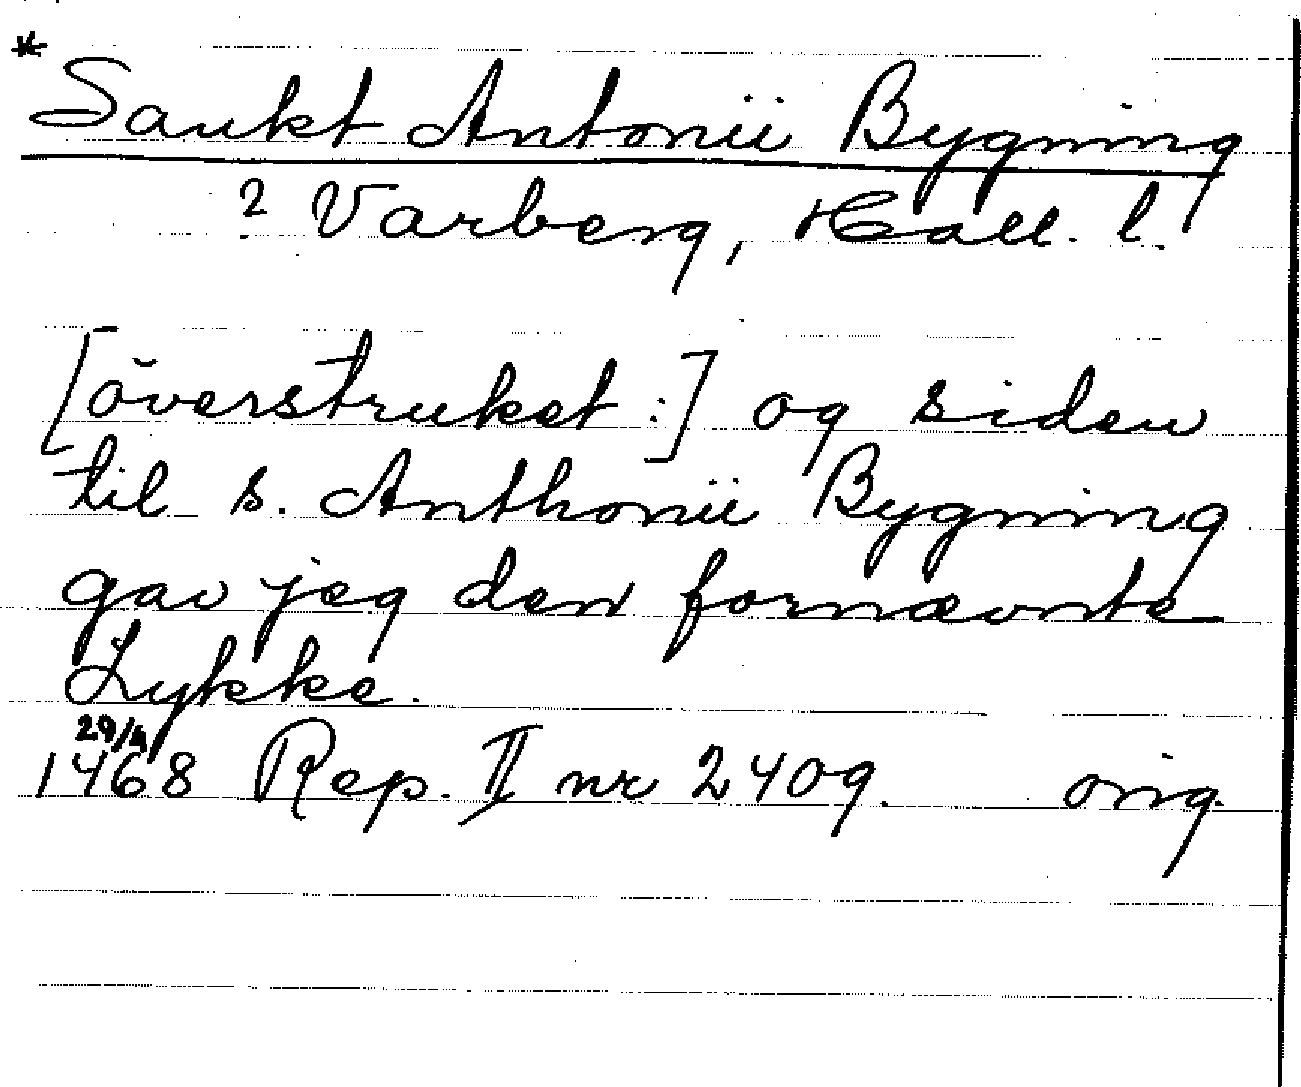 * Sankt Antonii Bygning
? Varberg, Hall. l.
[överstruket:] og siden
til s. Anthonii Bygning
gav jeg den fornævnte
Lykke.
29/4
1468 Rep. II nr 2409. orig.